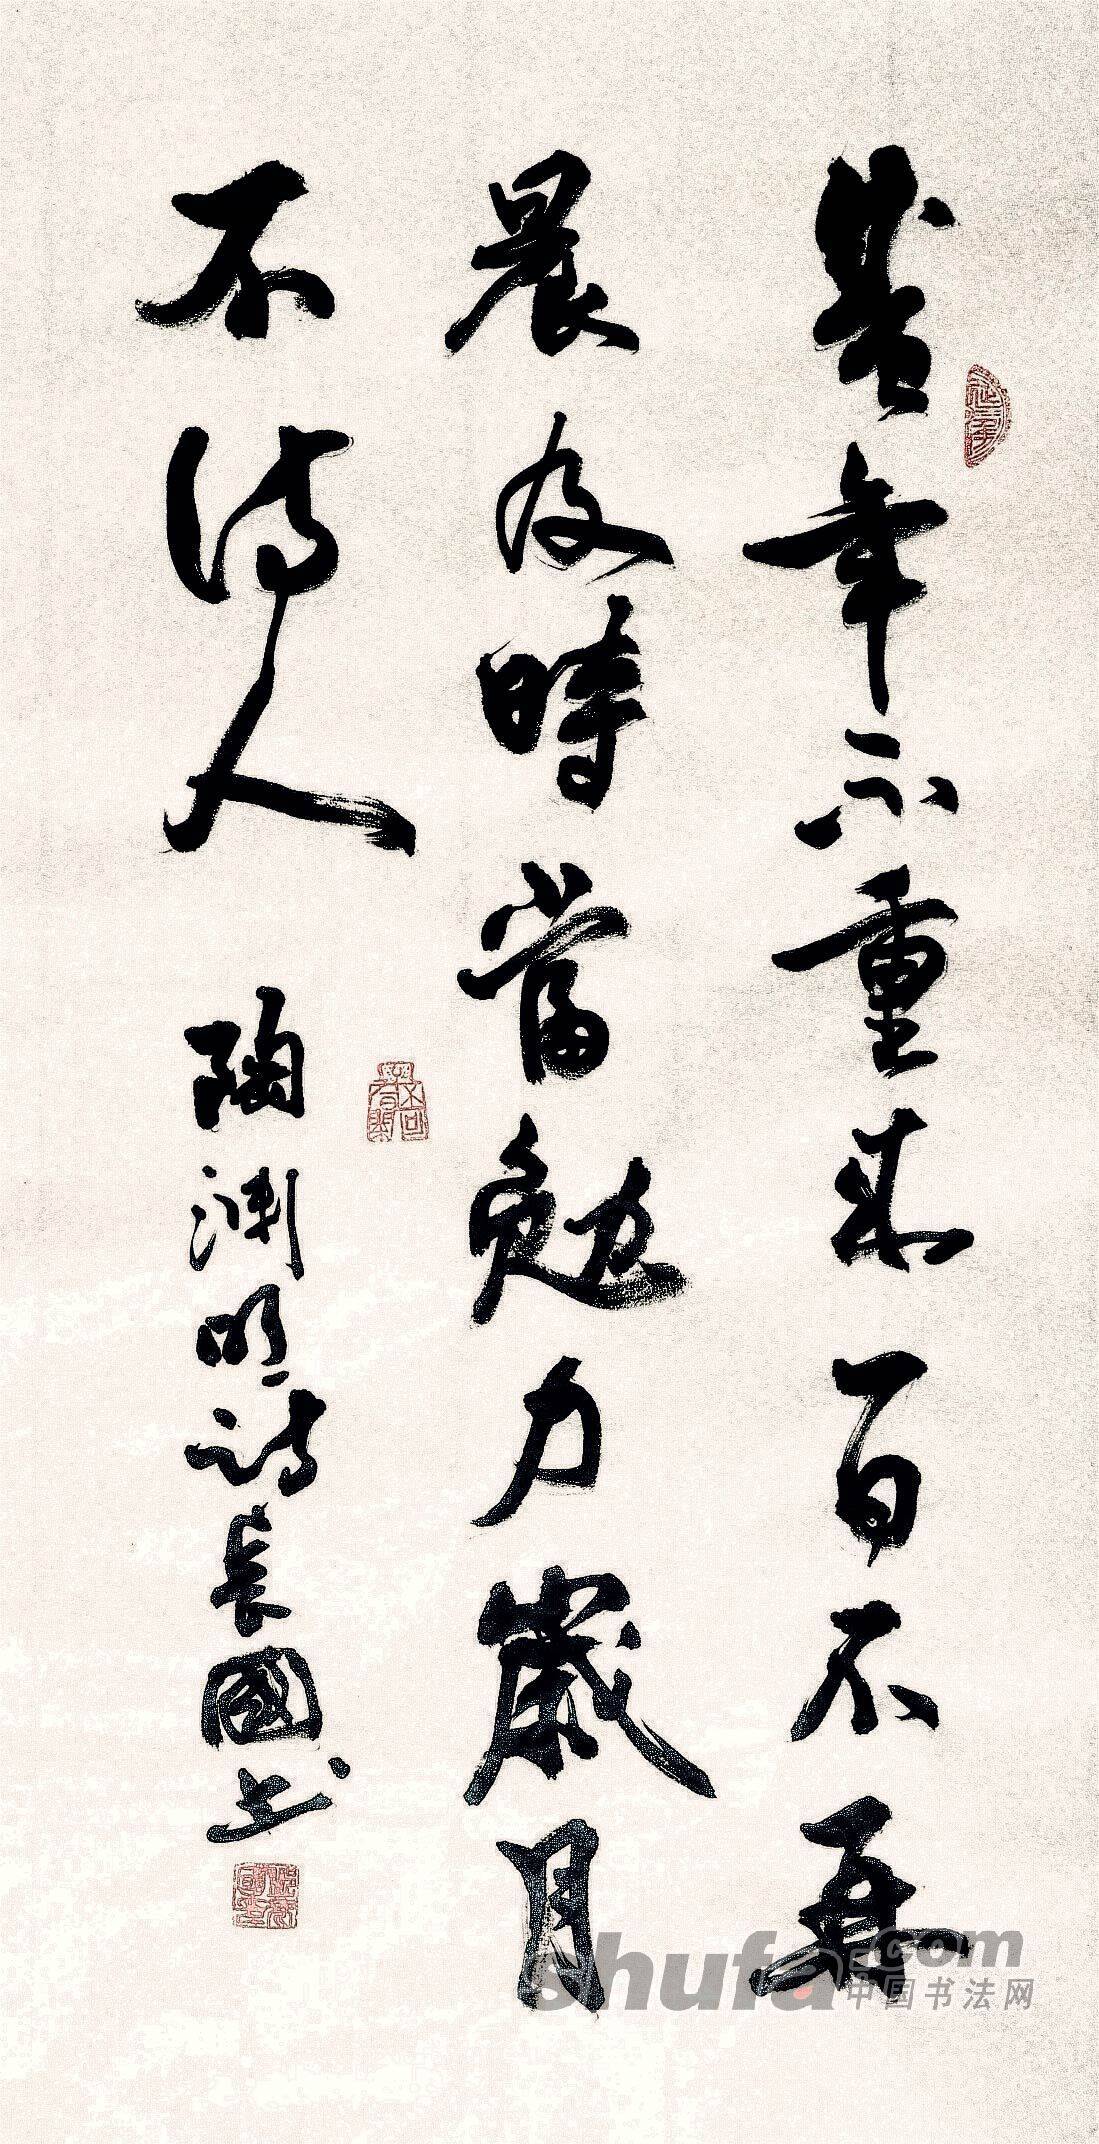 盛年不重来一日不再
晨及時當勉力歲月
不待人
陶渊明诗長國书
shufa.com
中国书法网